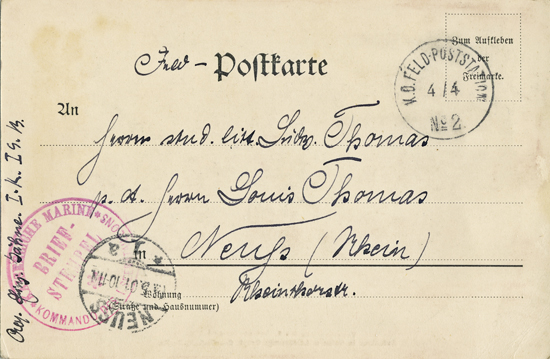 Feld - Postkarte
Zum Aufkleben
der
Freimarke.
K.D. FELD-POSTSTATION
4/4
No 2.
An
Herrn stud. litt. Thomas
p. A. Herrn Louis Thomas
in Neuss (Rhein)
Wohnung
(Straße und Hausnummer)
Rheinthorstr.
MARINE
BRIEF-
STEMPEL
KOMMANDO
NEUSS